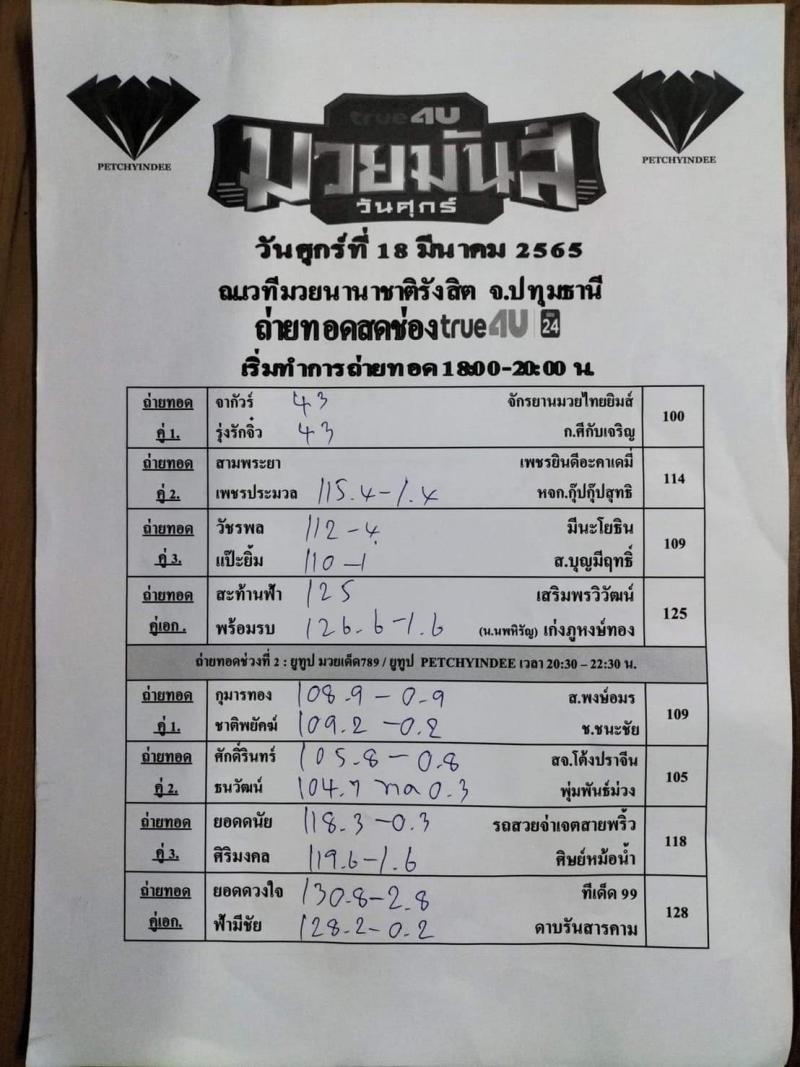 PETCHYINDEE
true4U
PETCHYINDEE
มวยมันส์
วันศุกร์
วันศุกร์ที่ 18 มีนาคม 2565
ณเวทีมวยนานาชาติรังสิต จ.ปทุมธานี
ถ่ายทอดสดช่องtrue4U 24
เริ่มทำการถ่ายทอด 18:00-20:00 น.
ถ่ายทอด จากัวร์ 43 จักรยานมวยไทยยิมส์ 100
คู่ 1. รุ่งรักจิ๋ว 43 ก.ศึกับเจริญ
ถ่ายทอด สามพระยา เพชรยินดีอะคาเดมี่ 114
คู่ 2. เพชรประมวล 115.4-1.4 หจก.กุ๊ปกุ๊ปสุทธิ
ถ่ายทอด วัชรพล 112-4 มีนะโยธิน 109
คู่ 3. แป๊ะยิ้ม 110-1 ส.บุญมีฤทธิ์
ถ่ายทอด สะท้านฟ้า 125 เสริมพรวิวัฒน์ 125
คู่เอก. พร้อมรบ 126.6-1.6 (น.นพหิรัญ) เก่งภูหงษ์ทอง
ถ่ายทอดช่วงที่ 2 : ยูทูป มวยเด็ด789 / ยูทูป PETCHYINDEE เวลา 20:30 - 22:30 น.
ถ่ายทอด กุมารทอง 108.9-0.9 ส.พงษ์อมร 109
คู่ 1. ชาติพยัคฆ์ 109.2-0.2 ช.ชนะชัย
ถ่ายทอด ศักดิ์รินทร์ 105.8-0.8 สจ.โต้งปราจีน 105
คู่ 2. ธนวัฒน์ 104.7 ทด 0.3 พุ่มพันธ์ม่วง
ถ่ายทอด ยอดดนัย 118.3-0.3 รถสวยจ่าเจตสายพริ้ว 118
คู่ 3. ศิริมงคล 119.6-1.6 ศิษย์หม้อน้ำ
ถ่ายทอด ยอดดวงใจ 130.8-2.8 ทีเด็ด 99 128
คู่เอก. ฟ้ามีชัย 128.2-0.2 ดาบรันสารคาม